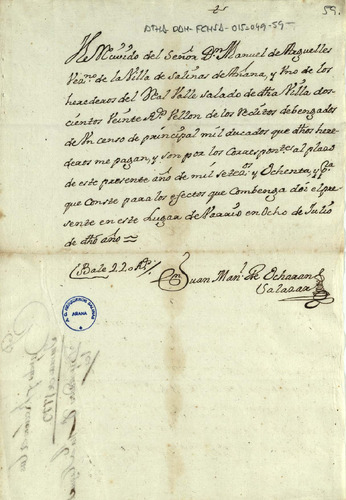 ATHA-DAH-FCHSA-015-049-59-
59.
He Rᵛⁱᵈᵒ del Señor Dⁿ Manuel de Arguelles
Veᶻⁿᵒ de la Villa de Salinas de Añana, y Vno de los
herederos del Real Valle Salado de dha Villa, dos-
cientos Veinte Rˢ Vellon de los Reditos debengados
de Vn censo de principal mil ducados que dhos here-
deros me pagan, y son por los Correspontᵉˢ al plazo
de este presente año de mil Setecᵒˢ y Ochenta, y pᵃ
que Conste para los efectos que Combenga doi el pre-
sente en este Lugar de en Ocho de Julio
de dho año
Bale 220 Rˢ
Juan Manˡ de Ocharan
Salazar
AÑANA